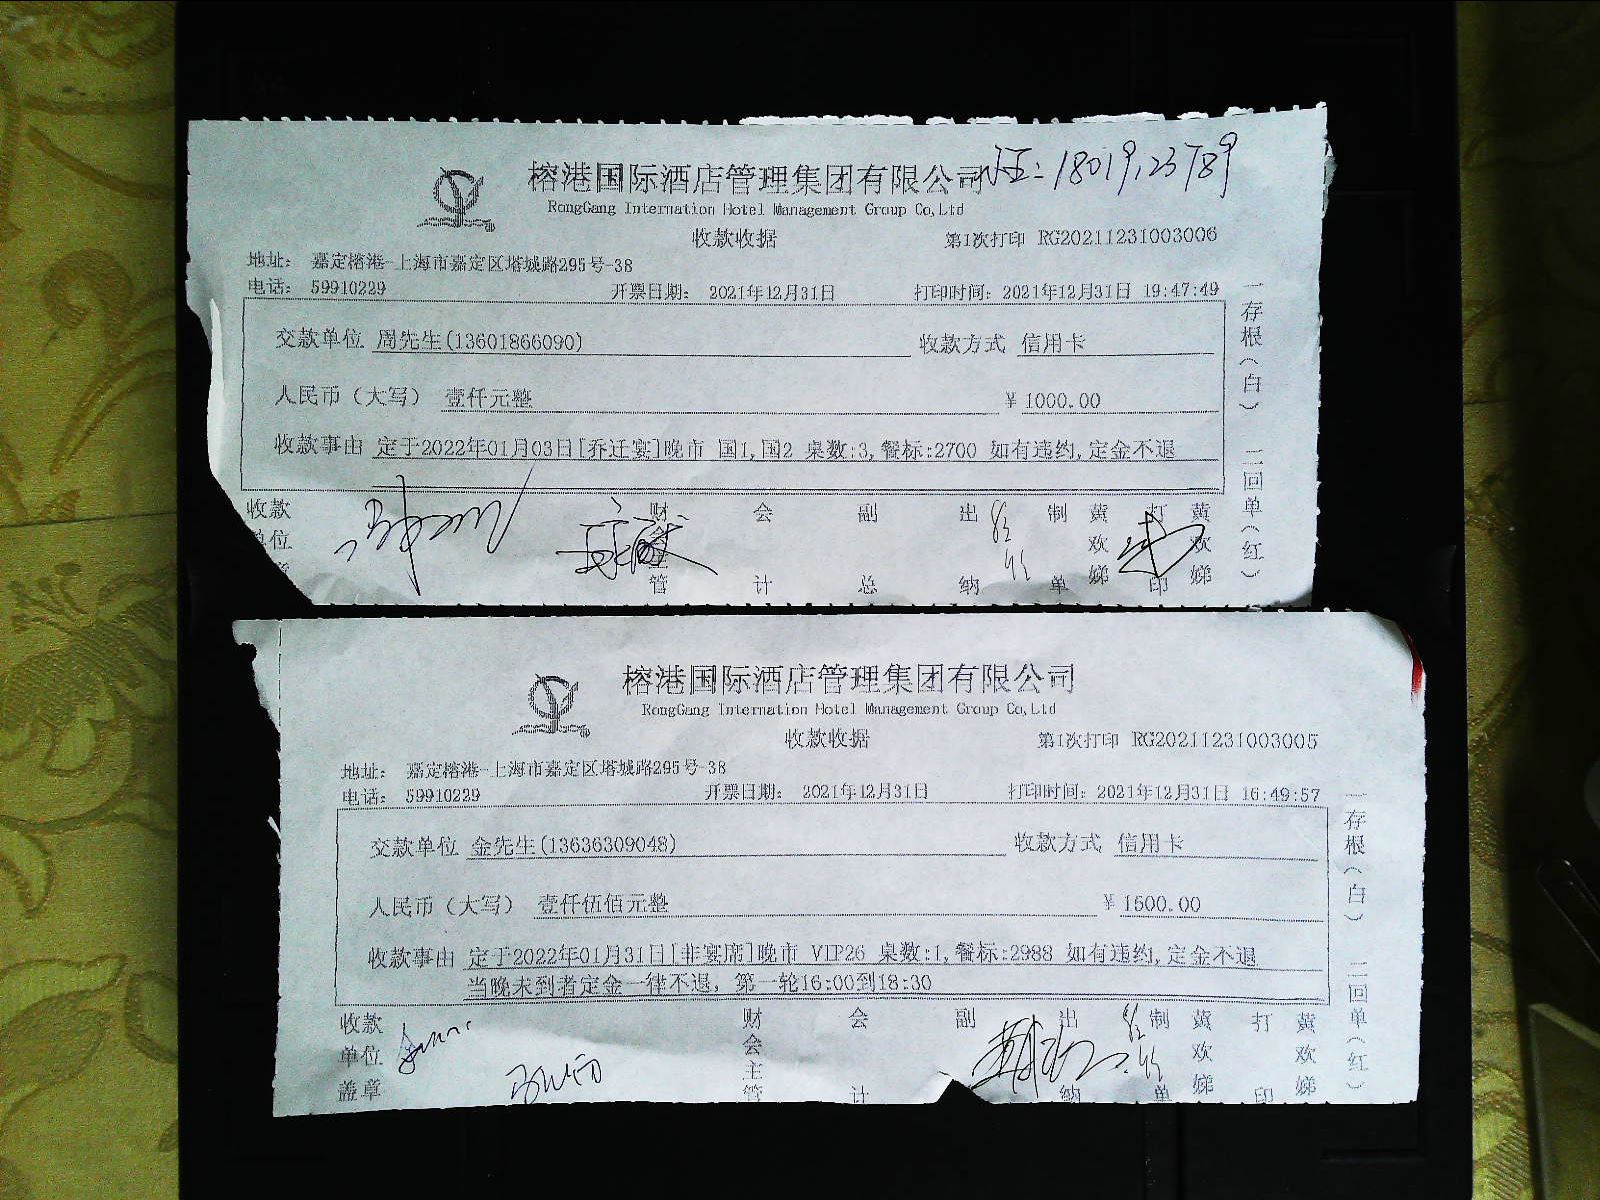 榕港国际酒店管理集团有限公司
18019123789
RongGang Internation Hotel Management Group Co,Ltd
收款收据
第1次打印 RG20211231003006
地址： 嘉定榕港-上海市嘉定区塔城路295号-38
电话： 59910229 开票日期： 2021年12月31日 打印时间： 2021年12月31日 19:47:49
交款单位 周先生(13601866090) 收款方式 信用卡
人民币（大写） 壹仟元整 ￥1000.00
收款事由 定于2022年01月03日[乔迁宴]晚市 国1,国2 桌数:3,餐标:2700 如有违约,定金不退
收款单位 财会主管 会计 副总 出纳 制单 黄欢娣 打印 黄欢娣
一存根（白） 二回单（红）
榕港国际酒店管理集团有限公司
RongGang Internation Hotel Management Group Co,Ltd
收款收据
第1次打印 RG20211231003005
地址： 嘉定榕港-上海市嘉定区塔城路295号-38
电话： 59910229 开票日期： 2021年12月31日 打印时间： 2021年12月31日 16:49:57
交款单位 金先生(13636309048) 收款方式 信用卡
人民币（大写） 壹仟伍佰元整 ￥1500.00
收款事由 定于2022年01月31日[非宴席]晚市 VIP26 桌数:1,餐标:2988 如有违约,定金不退
当晚未到者定金一律不退, 第一轮16:00到18:30
收款单位盖章 财会主管 会计 副 出纳 制单 黄欢娣 打印 黄欢娣
一存根（白） 二回单（红）